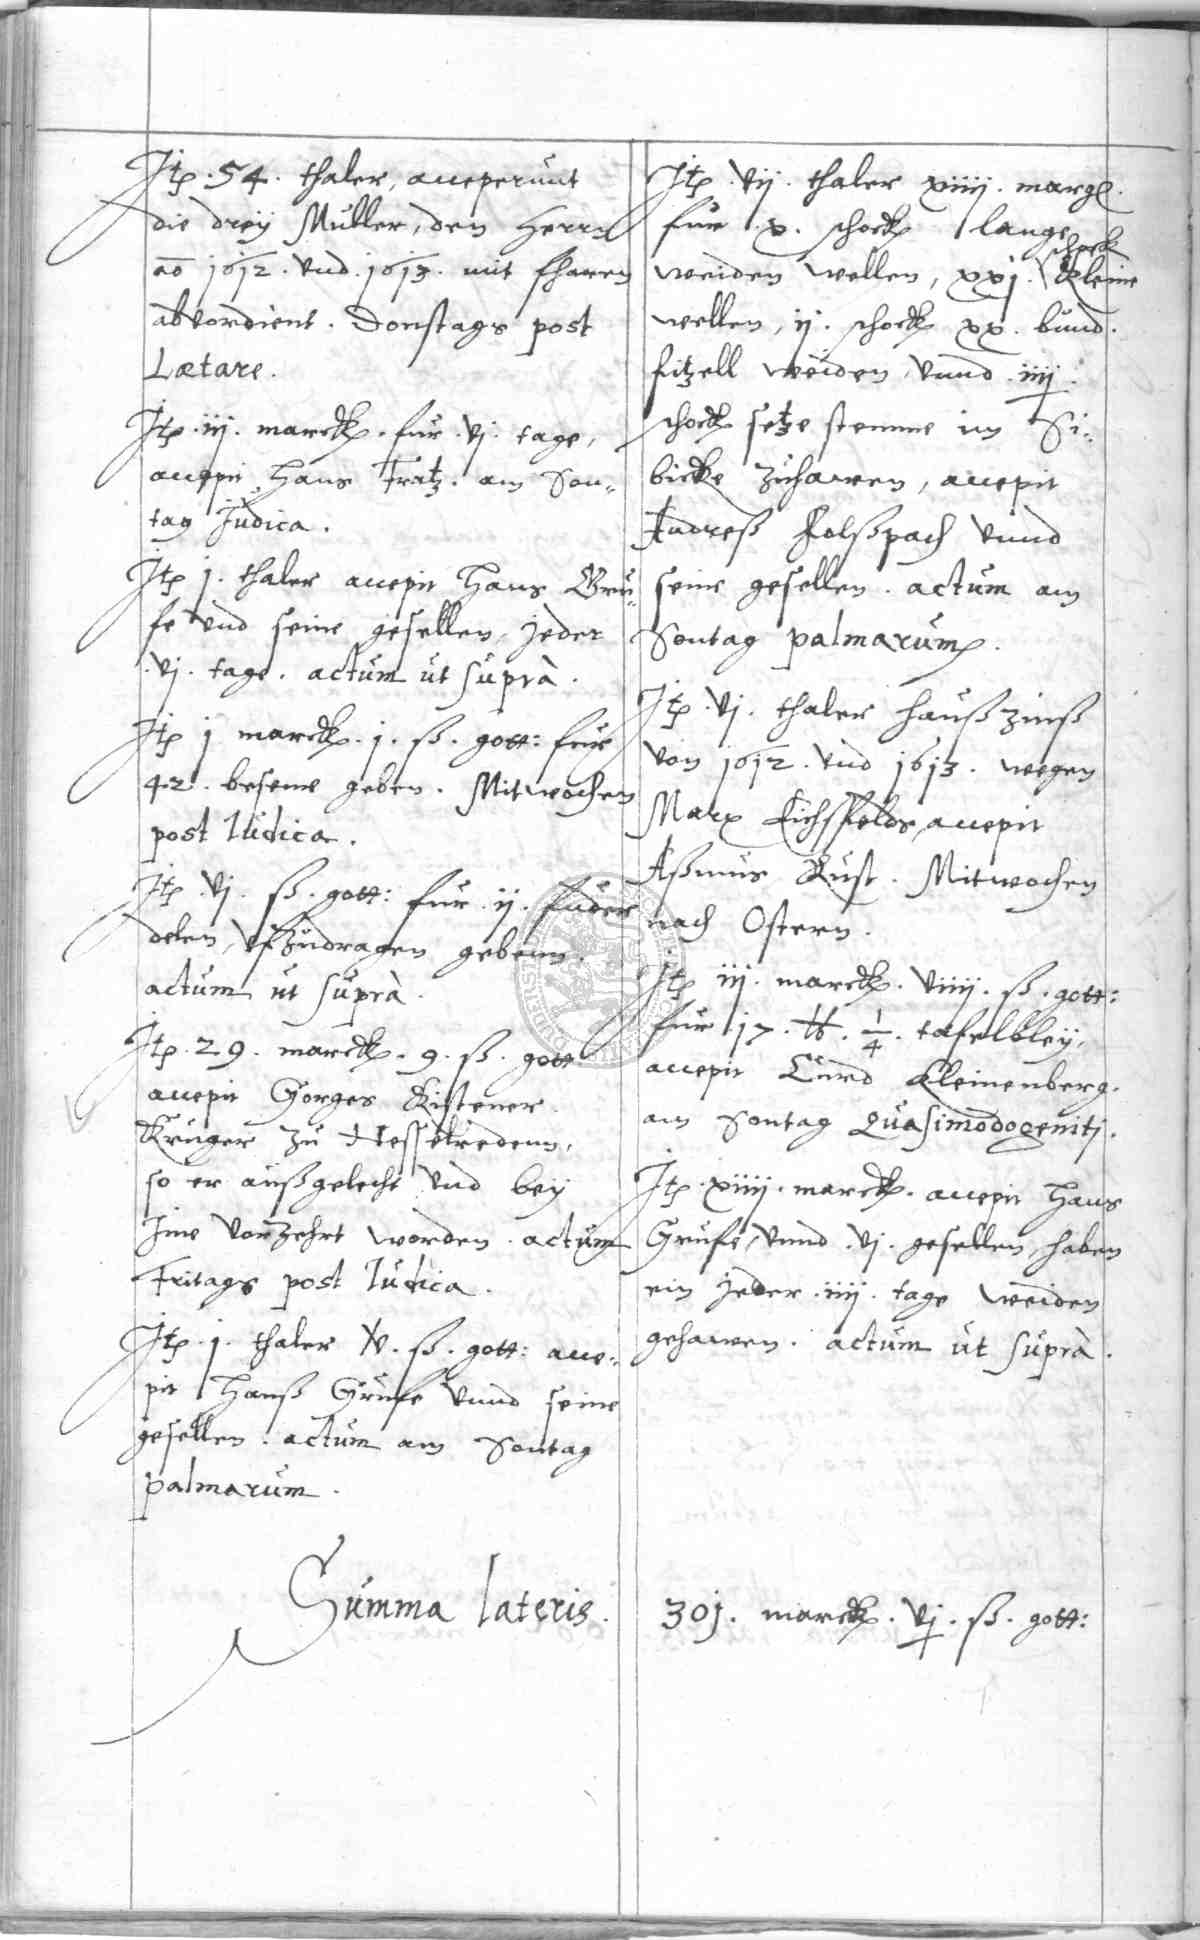 Itꝑ. 54. thaler, acceperunt
die dreÿ Müller, den Herrn
aõ 1612. vnd. 1613. mit fharen
abvordient. Donstags post
Lætare.
Itꝑ. iij. marck. fur. vj. tage,
accepit Hans Fratz. am Son-
tag Judica.
Itꝑ j. thaler accepit Hans Gru-
fe vnd seine gesellen, jeder
.vj. tage. actum ut suprà.
Itꝑ j marck. j. ß. gott: fur
42. beseme geben. Mitwochen
post Iudica.
Itꝑ. vj. ß. gott: fur. ij. fuder
delen, vffzudragen gebenn.
actum ut suprà.
Itꝑ. 29. marck. 9. ß. gott
accepit Gorges Kistener
Krüger zu Hesseltredenn,
so er außgelecht vnd bey
Ime vorzehrt worden. actum
Fritags post Iudica.
Itꝑ. j. thaler v. ß. gott: acce-
pit Hanß Grufe vnnd seine
gesellen. actum am Sontag
palmarum.
Itꝑ. vij. thaler xiiij. margl.
fur. x. schock lange
weiden wellen, xxj. schock kleine
wellen, ij. schock xx. bund.
fitzell weiden, vnnd. iiij.
schock setze stemme im Si-
bicke zuhawen, accepit
Andreß Folßpach vnnd
seine gesellen. actum am
Sontag palmarum.
Itꝑ. vj. thaler haußzinß
von 1612. vnd 1613. wegen
Marx Eichsfelds, accepit
Aßmus Rust. Mitwochen
nach Ostern.
Itꝑ iij. marck. viiij. ß. gott:
fur 17. ℔. 1/4. tafelbley,
accepit Curd Kleinenberg.
am Sontag Quasimodogenitj.
Itꝑ. xiiij. marck. accepit Hans
Grufe, vnnd. vj. gesellen, haben
ein jeder. iiij. tage weiden
gehawen. actum ut suprà.
Summa lateris. 301. marck. vj. ß. gott: